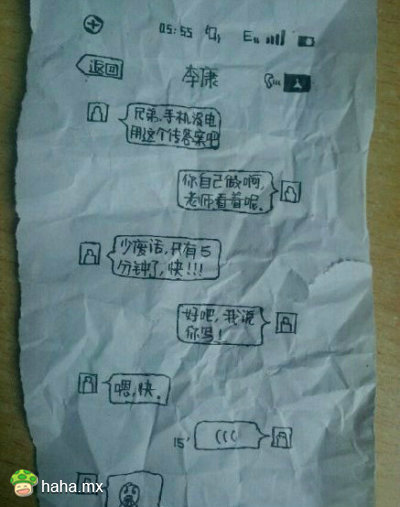 05:55 E
返回 李康
兄弟、手机没电
用这个传答案吧
你自己做啊,
老师看着呢。
少废话,只有5
分钟了,快!!!
好吧,我说
你写!
嗯,快。
15'
haha.mx